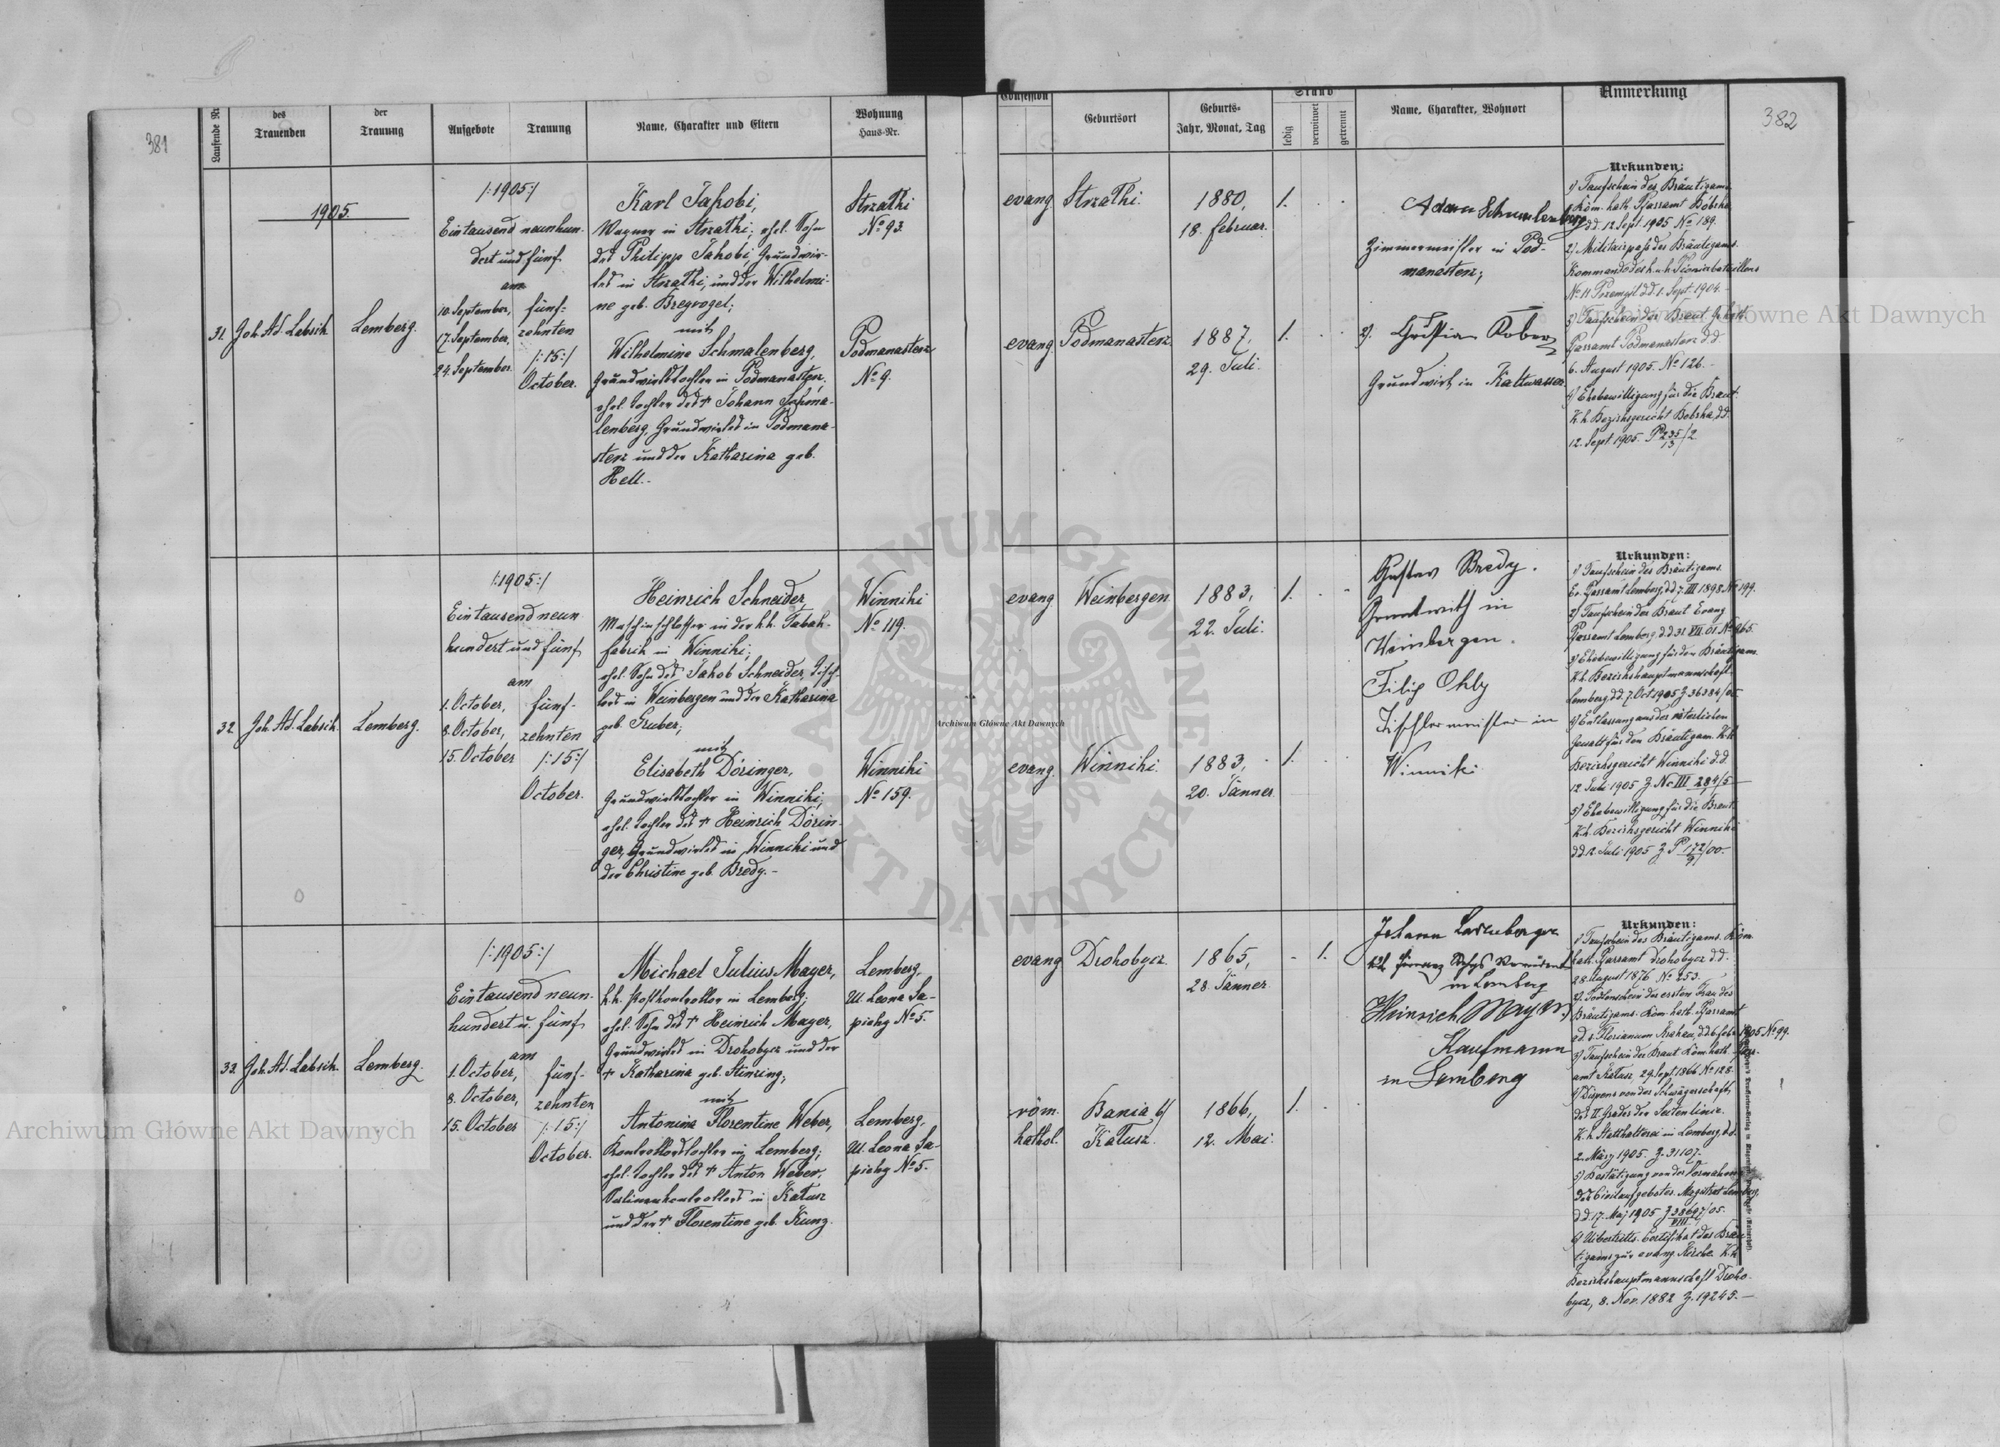 381
382
Laufende Nr.
des
Trauenden
der
Trauung
Aufgebote
Trauung
Name, Charakter und Eltern
Wohnung
Haus-Nr.
Confession
Geburtsort
Geburts-
Jahr, Monat, Tag
Stand
ledig
verwitwet
getrennt
Name, Charakter, Wohnort
Anmerkung
1905
31.
Joh. Ad. Labsik
Lemberg.
/:1905:/
Eintausend neunhun-
dert und fünf
am
10. September,
17. September,
24. September.
fünf-
zehnten
/:15:/
October.
Karl Jakobi,
Wagner in Strzałki, ehel. Sohn
des Philipp Jakobi, Grundwir-
tes in Strzałki, und der Wilhelmi-
ne geb. Bregvogel;
mit
Wilhelmine Schmalenberg,
Grundwirtstochter in Podmanasterz,
ehel. Tochter des + Johann Schma-
lenberg, Grundwirtes in Podmana-
sterz und der Katharina geb.
Hell.-
Strzałki
No 93.
Podmanasterz
No 9.
evang.
Strzałki.
1880,
18. Februar.
1.
evang.
Podmanasterz
1887,
29. Juli.
1.
Adam Schmalenberg
Zimmermeister in Pod-
manasterz;
2. Christian Kober
Grundwirt in Kaltwasser.
Urkunden:
1) Taufschein des Bräutigams
Röm. kath. Pfarramt Bóbrka
dd. 12 Sept. 1905 No 189.
2) Militairpass des Bräutigams.
Kommando des k.u.k. Pionierbataillons
No 11 Przemyśl dd. 1. Sept. 1904.-
3) Taufschein der Braut.
Pfarramt Podmanasterz d.d.
6. August 1905. No 126.-
4) Ehebewilligung für die Braut.
K.k. Bezirksgericht Bóbrka d.d.
12. Sept 1905. P 235/13/2
32.
Joh. Ad. Labsik.
Lemberg.
/:1905:/
Eintausend neun-
hundert und fünf
am
1. October,
8. October,
15. October
fünf-
zehnten
/:15:/
October.
Heinrich Schneider,
Maschinschlosser in der k.k. Tabak-
fabrik in Winniki;
ehel. Sohn des Jakob Schneider, Tisch-
lers in Weinbergen und der Katharina
geb. Gruber;
mit
Elisabeth Döringer,
Grundwirtstochter in Winniki,
ehel. Tochter des + Heinrich Dörin-
ger, Grundwirtes in Winniki und
der Christine geb. Bredy.-
Winniki
No 119.
Winniki
No 159.
evang.
Weinbergen
1883,
22. Juli.
1.
evang.
Winniki.
1883,
20. Jänner
1.
Gustav Bredy.
Grundwirth in
Weinbergen.
Filip Ohly
Tischlermeister in
Winniki
Urkunden:
1) Taufschein des Bräutigams.
Ev. Pfarramt Lemberg, dd 7. III 1898 No 199.
2) Taufschein der Braut Evang
Pfarramt Lemberg d.d 31. VII. 01. No 965.
3) Ehebewilligung für den Bräutigam.
K.k. Bezirkshauptmannschaft
Lemberg d.d. 7. Oct 1905 Z 36384/05
4) Entlassung aus der väterlichen
Gewalt für den Bräutigam K.k.
Bezirksgericht Winniki d.d.
12 Juli 1905 Z Nc III 284/5-
5) Ehebewilligung für die Braut.
K.k. Bezirksgericht Winniki
dd. 2. Juli 1905 Z P 172/00-
33.
Joh. Ad. Labsik.
Lemberg.
/:1905:/
Eintausend neun-
hundert u. fünf
am
1. October,
8. October,
15. October
fünf-
zehnten
/:15:/
October.
Michael Julius Mayer,
k.k. Postkontrollor in Lemberg;
ehel. Sohn des + Heinrich Mayer,
Grundwirtes in Drohobycz und der
+ Katharina geb. Stinzing;
mit
Antonina Florentine Weber,
Kontrollorstochter in Lemberg;
ehel. Tochter des + Anton Weber,
Salinenkontrollors in Kałusz
und der + Florentine geb. Kunz.
Lemberg,
Ul. Leona Sa-
piehy No 5.
Lemberg.
Ul. Leona Sa-
piehy No 5.
evang
Drohobycz
1865,
28. Jänner.
1.
röm.
kathol.
Bania b/
Kałusz.
1866,
12. Mai.
1.
Johann
in Lemberg
Heinrich Mayer,
Kaufmann
in Lemberg
Urkunden:
1) Taufschein des Bräutigams. Röm.
kath. Pfarramt Drohobycz d.d.
28. August 1876 No 253.
2) Todtenschein der ersten Frau des
Bräutigams. Röm. kath. Pfarramt
ad S. Florianum Krakau, dd 6. Febr. 1905 No 99.
3) Taufschein der Braut Röm. kath. Pfarr-
amt Kałusz, 29. Sept 1866 No 128.
4) Dispens von der Schwägerschaft
des II. Grades der Seitenlinie.
K.k. Statthalterei in Lemberg, d.d.
2. März 1905. Z. 31107.-
5) Bestätigung von der Vornahme
des Civilaufgebotes. Magistrat Lemberg,
dd. 17. Mai 1905 Z 38697/05.
VIII
6) Uibertritts-Certifikat des Bräu-
tigams zur evang. Kirche. K.k.
Bezirkshauptmannschaft Droho-
bycz, 8. Nov. 1882 Z. 19245.-
Archiwum Główne Akt Dawnych
Archiwum Główne Akt Dawnych
Archiwum Główne Akt Dawnych
ARCHIWUM GŁÓWNE AKT DAWNYCH